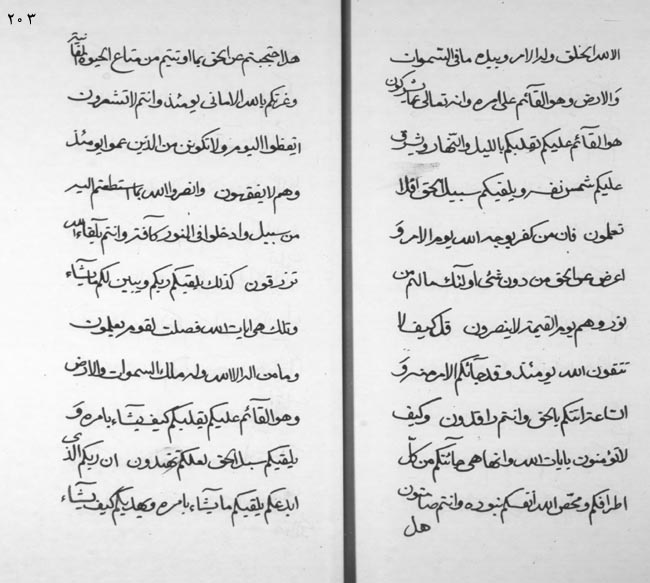 ٢٠٣
الا لله الخلق وله الامر وبيده ما فى السموات
والارض وهو القآئم على امره وانه تعالى عما يشركون
هو القآئم عليكم تقلبكم بالليل والنهار ويشرق
عليكم شمس نفسه ويلقيكم سبيل الحق افلا
تعلمون فان من كفر بوجه الله يوم الامر و
اعرض عن الحق من دون شئ اولئك ما لهم من
نور وهم يوم القيمة لا ينصرون قل كيف لا
تتقون الله يومئذ وقد جآئكم الامر منه و
الساعة اتتكم بالحق وانتم راقدون وكيف
لا تؤمنون بايات الله وانها هى جآئتكم من كل
اطرافكم ومحص الله انفسكم بنوره وانتم صامتون
هل
هل احتجبتم عن الحق بما اوتيتم من متاع الحيوة الفانية
وغرتكم بالله الامانى يومئذ وانتم لا تشعرون
اتقظوا اليوم ولا تكونن من الذين عموا يومئذ
وهم لا يفقهون وانفروا لله بما استطعتم اليه
من سبيل وادخلوا فى النور كآفة وانتم بلقاء الله
ترزقون كذلك يلقيكم ربكم ويبين لكم ما يشآء
وتلك هى ايات الله فصلت لقوم يعلمون
وما من اله الا الله وله ملك السموات والارض
وهو القآئم عليكم يقلبكم كيف يشآء بامره و
يلقيكم سبل الحق لعلكم تهتدون ان ربكم الذى
ابدعكم يلقيكم ما يشآء بامره ويهديكم كيف يشآء